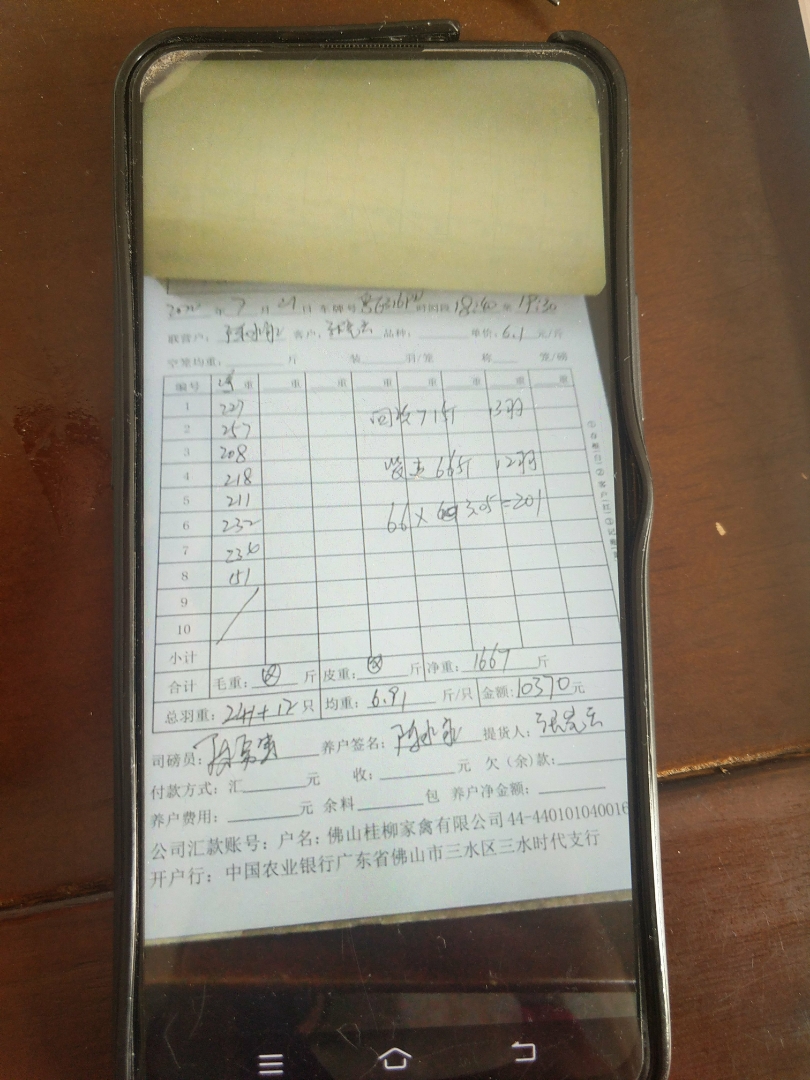 2022 年 7 月 21 日 车牌号 时间段 18:40 至 19:30
联营户: 客户: 品种: 单价: 6.1 元/斤
空笼均重: 斤 装 羽/笼 称 笼/磅
编号 净 重 重 重 重 重 重 重 重
1 227
2 257 回收71斤 13羽
3 208
4 218 发 66斤 12羽
5 211
6 232 66× 3.05=201
7 236
8 151
9
10
小计
合计 毛重: 斤 皮重: 斤 净重: 1667 斤
总羽重: 241+12 只 均重: 6.91 斤/只 金额: 10370 元
司磅员: 养户签名: 提货人:
付款方式: 汇 元 收: 元 欠(余)款:
养户费用: 元 余料 包 养户净金额:
公司汇款账号: 户名: 佛山桂柳家禽有限公司44-440101040016
开户行: 中国农业银行广东省佛山市三水区三水时代支行